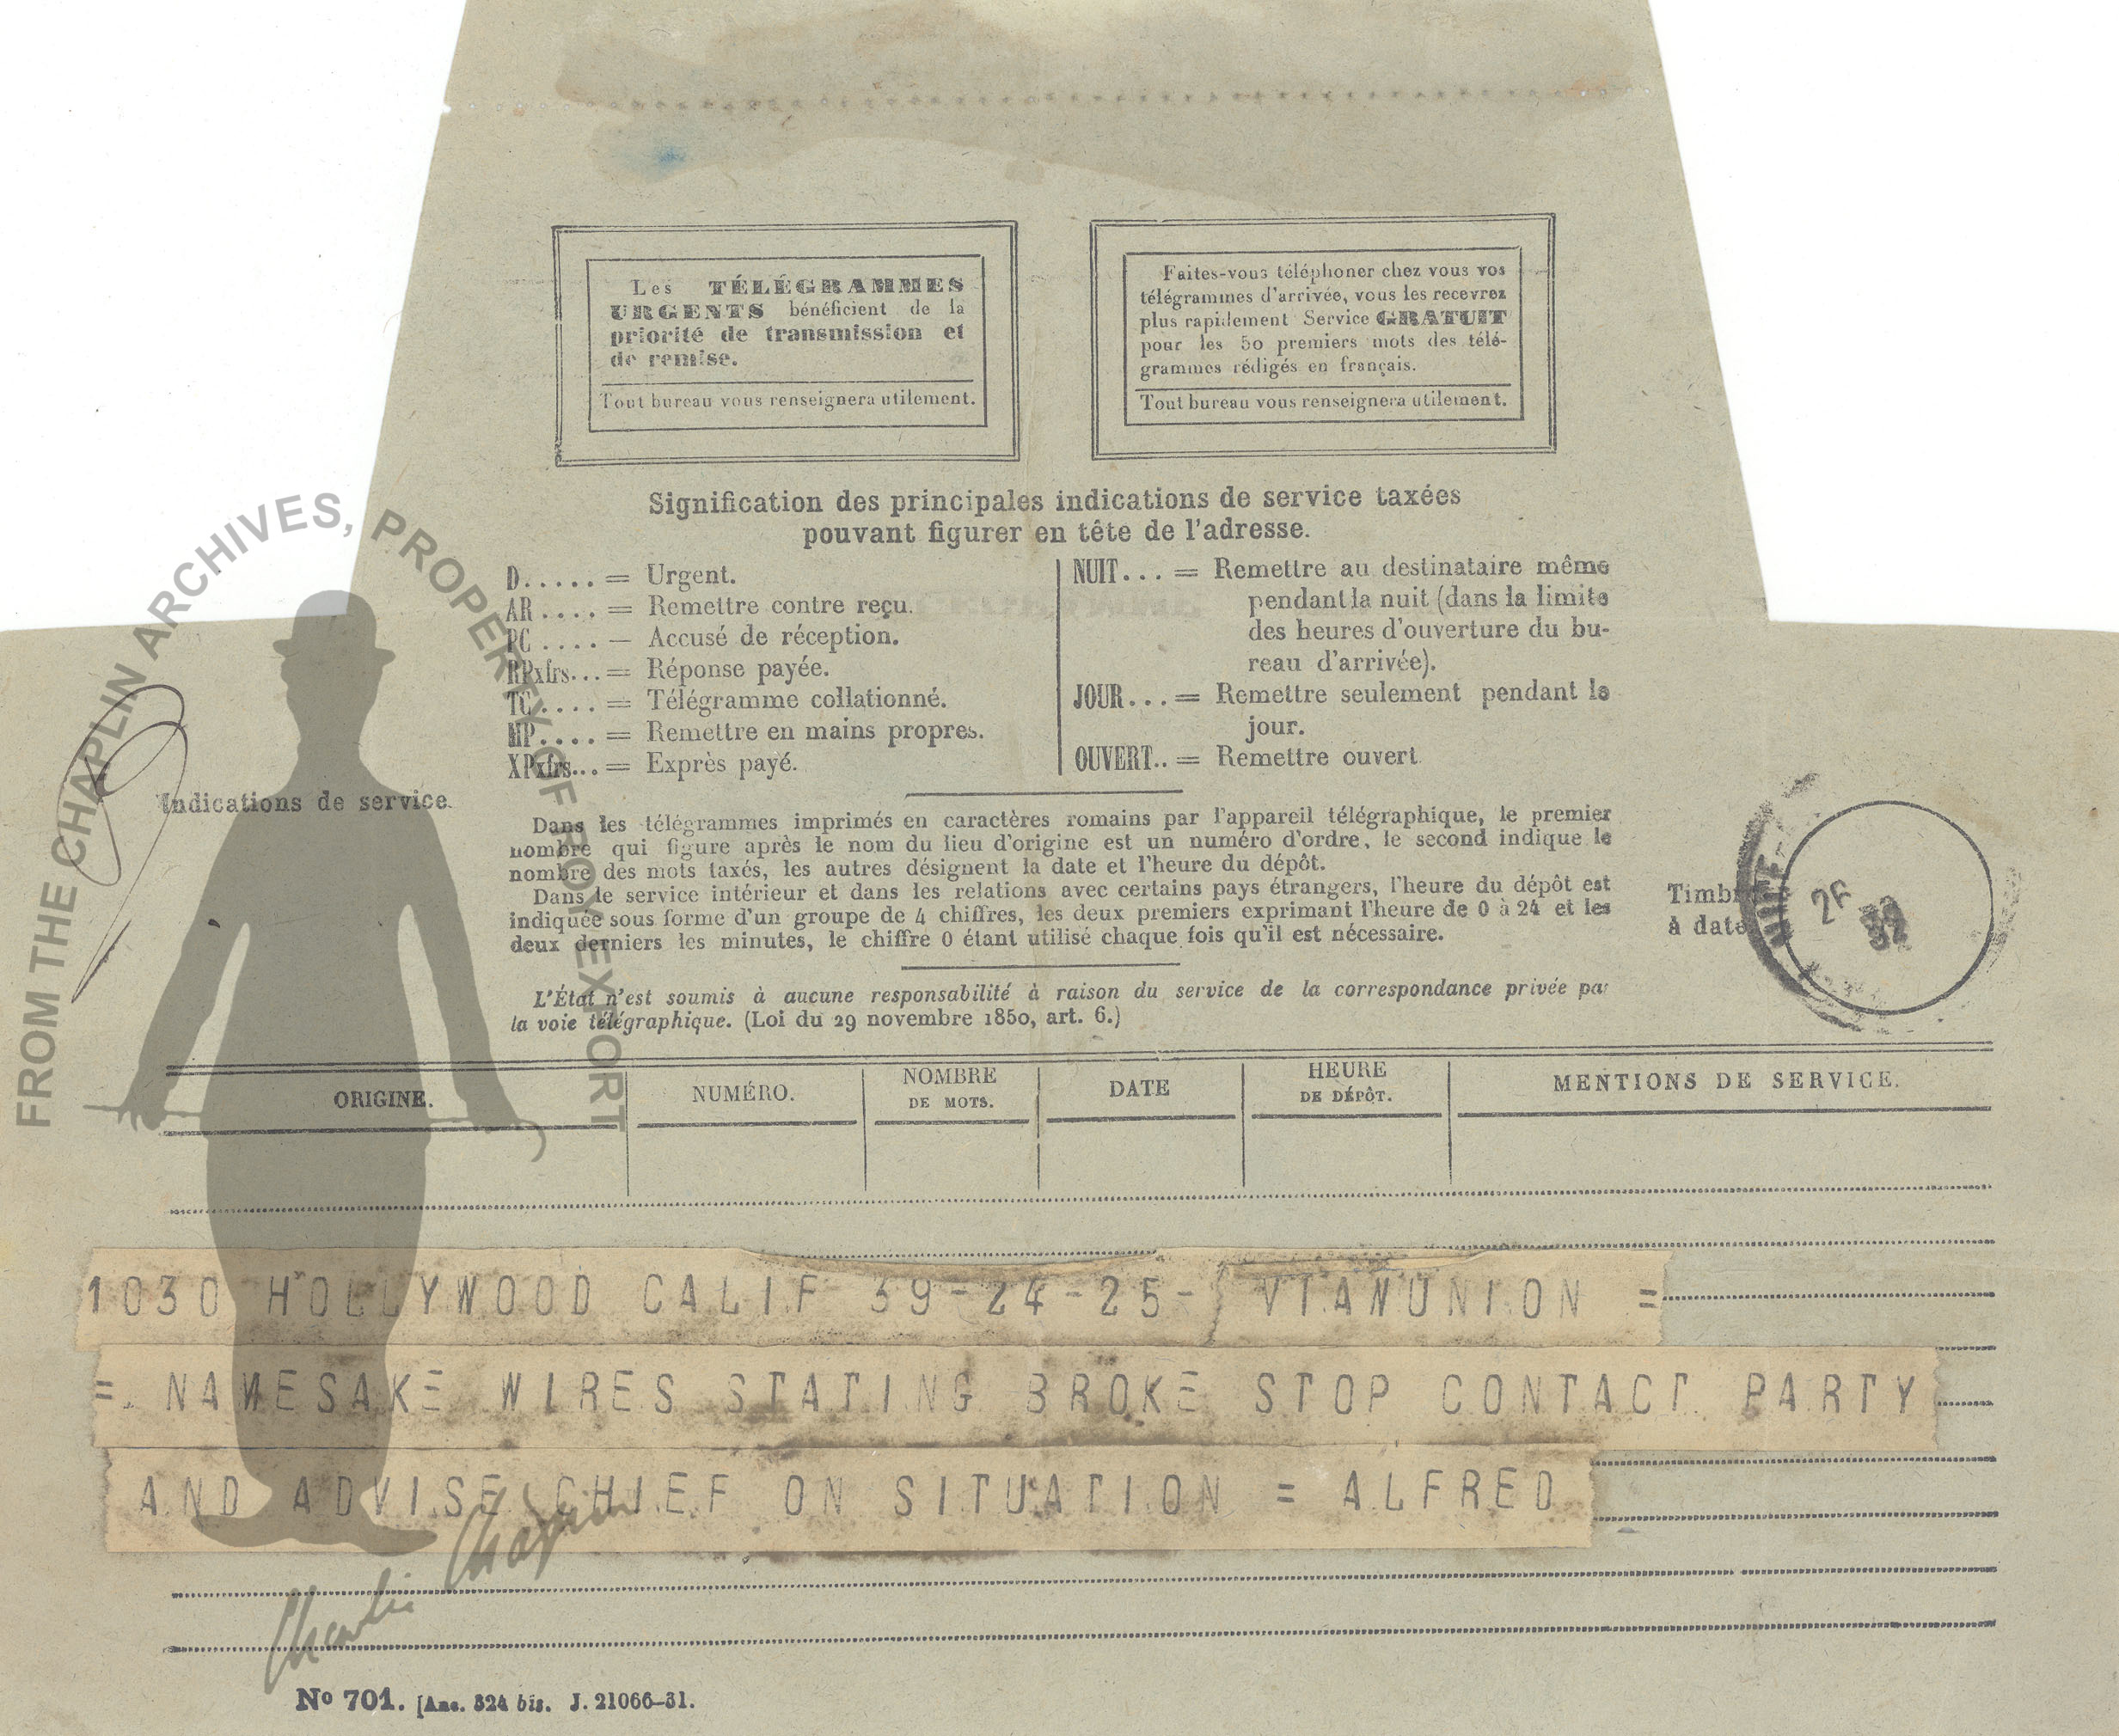 Les TÉLÉGRAMMES
URGENTS bénéficient de la
priorité de transmission et
de remise.
Tout bureau vous renseignera utilement.
Faites-vous téléphoner chez vous vos
télégrammes d'arrivée, vous les recevrez
plus rapidement Service GRATUIT
pour les 50 premiers mots des télé-
grammes rédigés en français.
Tout bureau vous renseignera utilement.
Signification des principales indications de service taxées
pouvant figurer en tête de l'adresse.
D..... = Urgent.
AR.... = Remettre contre reçu.
PC.... — Accusé de réception.
RPxfrs... = Réponse payée.
TC.... = Télégramme collationné.
MP.... = Remettre en mains propres.
XPxfrs... = Exprès payé.
NUIT... = Remettre au destinataire même
pendant la nuit (dans la limite
des heures d'ouverture du bu-
reau d'arrivée).
JOUR... = Remettre seulement pendant le
jour.
OUVERT.. = Remettre ouvert
Indications de service.
Dans les télégrammes imprimés en caractères romains par l'appareil télégraphique, le premier
nombre qui figure après le nom du lieu d'origine est un numéro d'ordre, le second indique le
nombre des mots taxés, les autres désignent la date et l'heure du dépôt.
Dans le service intérieur et dans les relations avec certains pays étrangers, l'heure du dépôt est
indiquée sous forme d'un groupe de 4 chiffres, les deux premiers exprimant l'heure de 0 à 24 et les
deux derniers les minutes, le chiffre 0 étant utilisé chaque fois qu'il est nécessaire.
Timbre
à date
L'État n'est soumis à aucune responsabilité à raison du service de la correspondance privée par
la voie télégraphique. (Loi du 29 novembre 1850, art. 6.)
ORIGINE. NUMÉRO. NOMBRE DE MOTS. DATE HEURE DE DÉPÔT. MENTIONS DE SERVICE.
1030 HOLLYWOOD CALIF 39-24-25- VIAWUNION =
= NAMESAKE WIRES STATING BROKE STOP CONTACT PARTY
AND ADVISE CHIEF ON SITUATION = ALFRED
Charlie Chaplin
Nº 701. [Ane. 324 bis. J. 21066-31.
FROM THE CHAPLIN ARCHIVES, PROPERTY OF ROY EXPORT